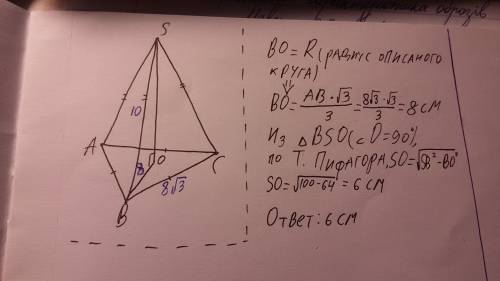 S
A
10
8
O
C
B
8√3
BO = R (радиус описаного
круга)
BO = AB·√3/3 = 8√3·√3/3 = 8 см
Из △BSO (∠O=90°),
по Т. Пифагора, SO=√SB²-BO²
SO=√100-64 = 6 см
Ответ: 6 см